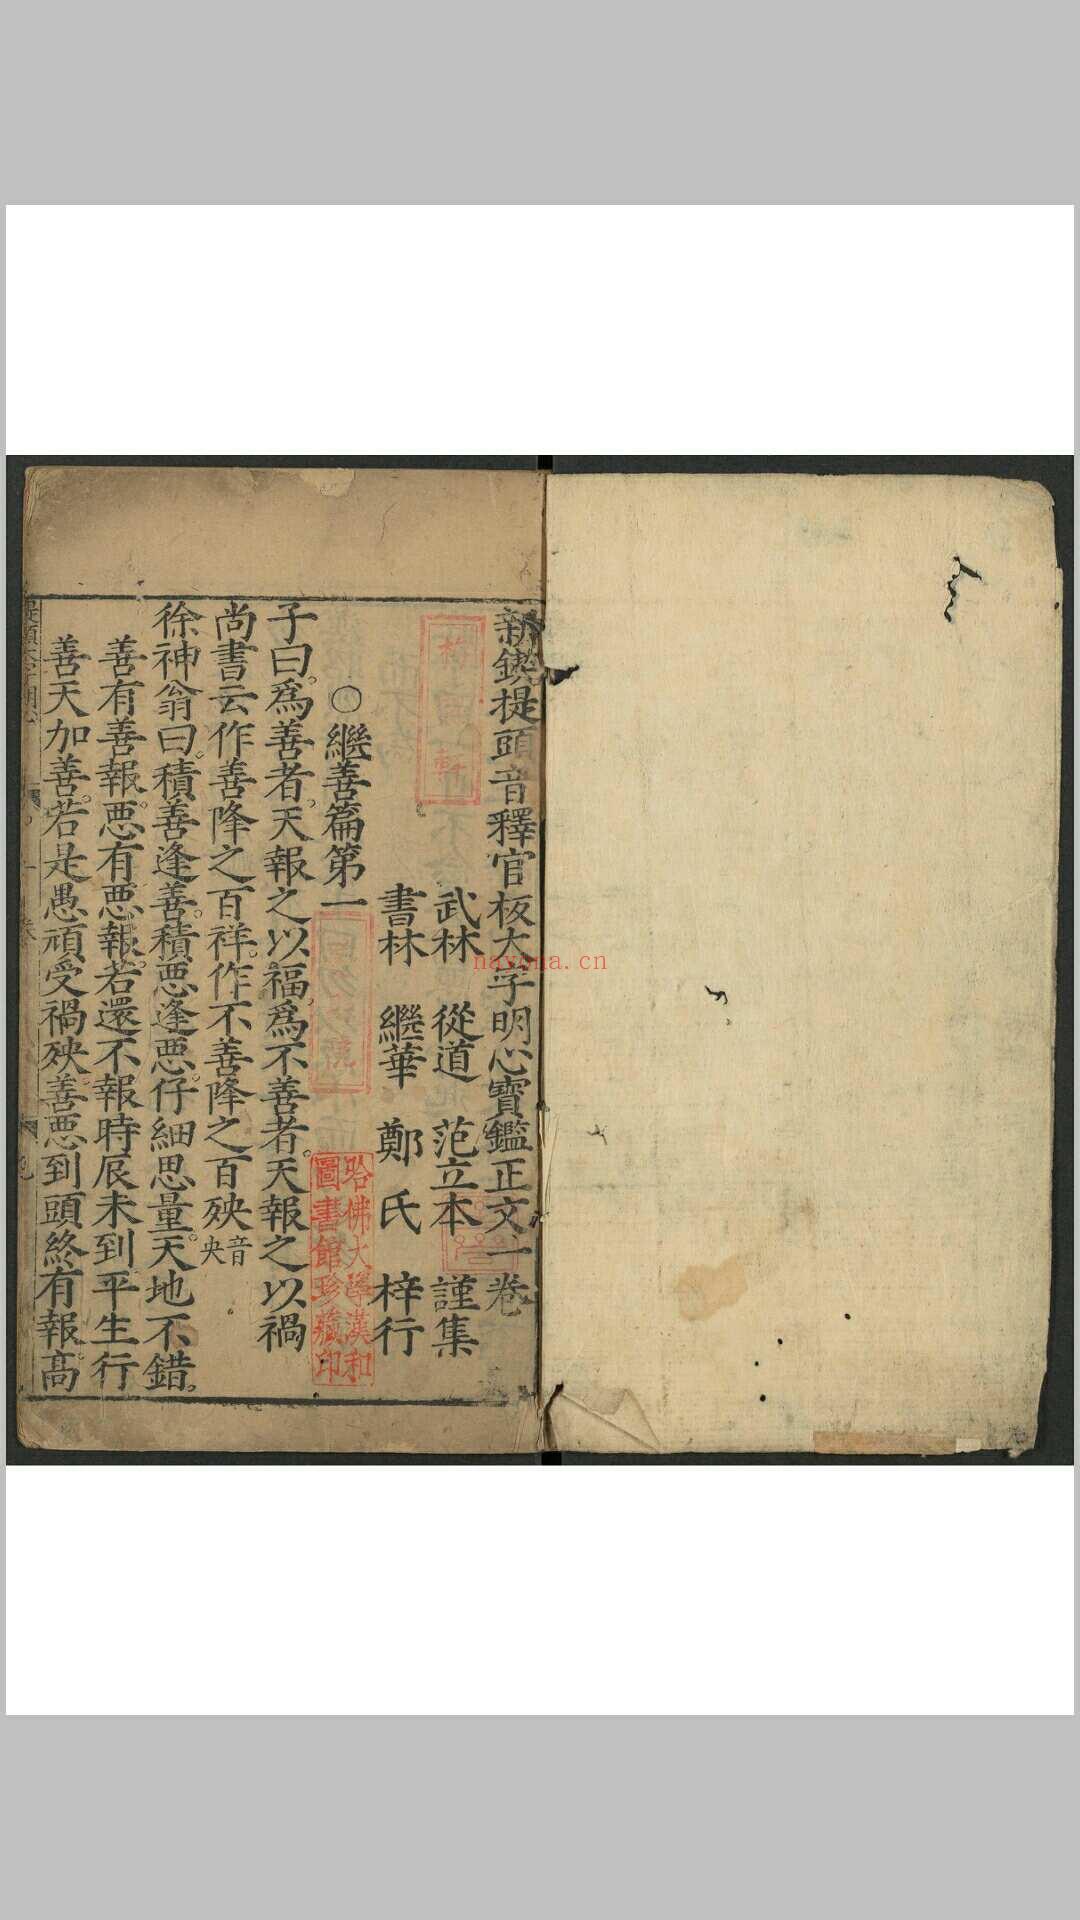 新鍥提頭音釋官板大字明心寳鑑正文一卷
武林 從道 范立本 謹集
書林 繼華 鄭氏 梓行
○繼善篇第一
子曰。爲善者。天報之以福。爲不善者。天報之以禍
尚書云作善降之百祥。作不善降之百殃音央
徐神翁曰。積善逢善。積惡逢惡。仔細思量。天地不錯。
善有善報。惡有惡報。若還不報時辰未到平生行
善天加善。若是愚頑受禍殃。善惡到頭終有報。高
哈佛大學漢和
圖書館珍藏印
nayona.cn